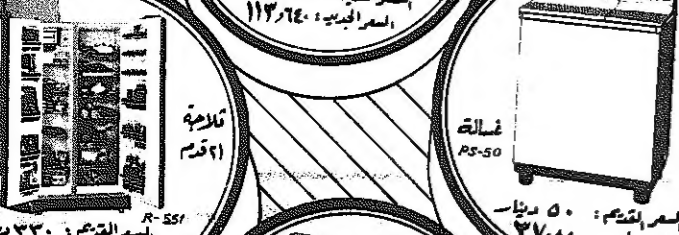 السعر الجديد: ١١٣٫٦٤٠
ثلاجة
٢١ قدم
R-551
السعر القديم: ٣٣٠
غسالة
PS-50
السعر القديم: ٥٠ دينار